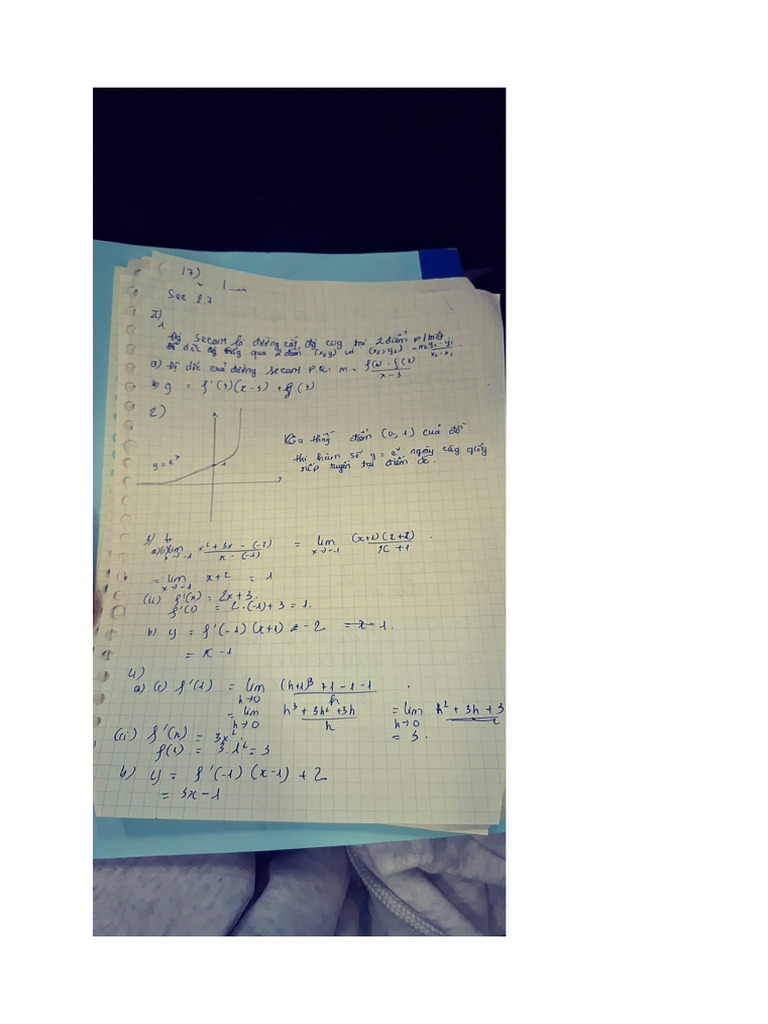 17)
Sec 2.7
secant là đường cắt, đg cog tại 2 điểm p/biệt
qua 2 điểm (x₁,y₁) và (x₂,y₂) = y₂-y₁/x₂-x₁
a) Độ dốc của đường secant PQ: m = f(x) - f(3)/x - 3
b) y = f'(3)(x-3) + f(3)
2)
y = eˣ
1
Khi thấy điểm (0,1) của đồ
thị hàm số y = eˣ ngày càng giống
tiếp tuyến tại điểm đó.
3)
a)(i) lim x→-1 x² + 3x - (-2)/x - (-1) = lim x→-1 (x+1)(x+2)/x+1.
= lim x→-1 x+2 = 1
(ii) f'(x) = 2x + 3.
f'(1) = 2·(-1) + 3 = 1.
b) y = f'(-1)(x+1) - 2 = x - 1.
= x - 1
4)
a) (i) f'(1) = lim h→0 (h+1)³ + 1 - 1 - 1/h
= lim h→0 h³ + 3h² + 3h/h = lim h→0 h² + 3h + 3
= 3.
(ii) f'(x) = 3x².
f(1) = 3.1² = 3
b) y = f'(-1)(x-1) + 2
= 3x - 1